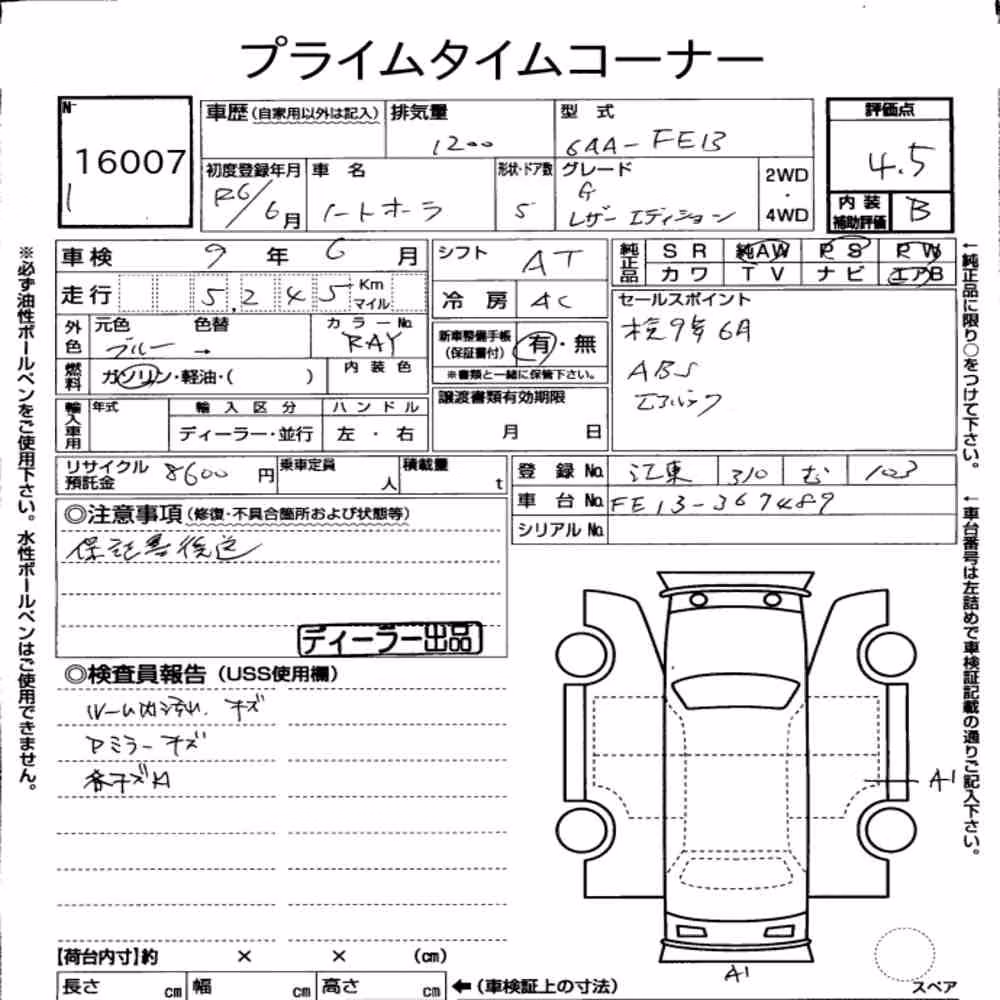 プライムタイムコーナー
No
16007
1
車歴(自家用以外は記入)
排気量
1200
型 式
6AA-FE13
評価点
4.5
内装補助評価
B
初度登録年月
R6/6月
車 名
ノートオーラ
形状・ドア数
5
グレード
G
レザーエディション
2WD
・
4WD
車検 9年 6月
走行 5,245 Km マイル
外色
元色 ブルー →
色替
カラーNo.
RAY
燃料
ガソリン・軽油・( )
内装色
輸入車用
年式
輸入区分
ディーラー・並行
ハンドル
左 ・ 右
シフト AT
冷房 AC
新車整備手帳(保証書付) 有・無
※書類と一緒に保管下さい。
譲渡書類有効期限
月 日
純正品
SR 純AW PS PW
カワ TV ナビ エアB
セールスポイント
木検9年6月
ABS
エアバック
リサイクル預託金 8600円
乗車定員 人
積載量 t
登録No. 江東 310 む 103
車台No. FE13-367489
シリアルNo.
◎注意事項(修復・不具合箇所および状態等)
保証書後送
ディーラー出品
◎検査員報告(USS使用欄)
ルーム内汚れ、キズ
Dミラーキズ
各キズ凹
A1
A1
スペア
【荷台内寸】約 × × (cm)
長さ cm 幅 cm 高さ cm ←(車検証上の寸法)
※必ず油性ボールペンをご使用下さい。水性ボールペンはご使用できません。
←純正品に限り○をつけて下さい。
←車台番号は左詰めで車検証記載の通りご記入下さい。